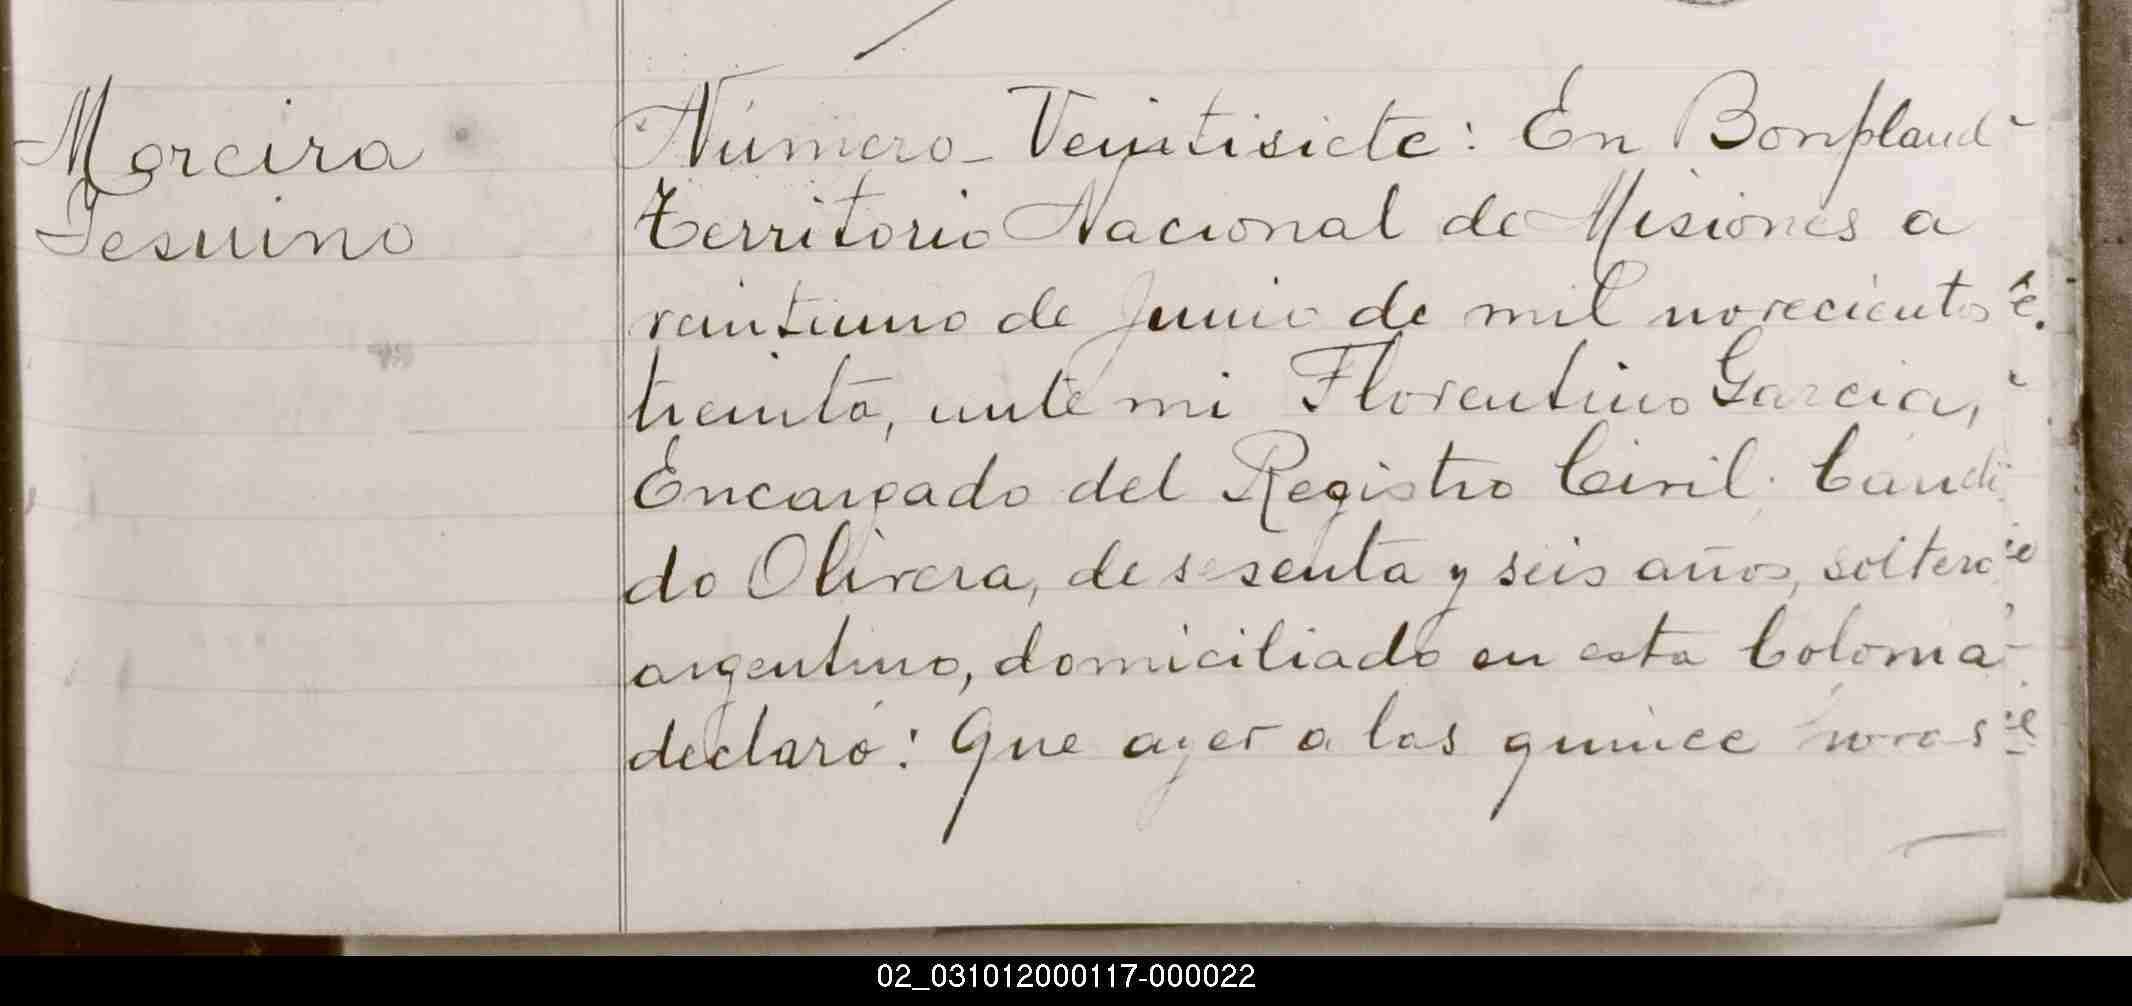 Moreira
Jesuino
Número Veintisiete: En Bonpland
Territorio Nacional de Misiones a
veintiuno de Junio de mil novecientos
treinta, ante mi Florentino Garcia,
Encargado del Registro Civil. Cándi
do Olivera, de sesenta y seis años, soltero
argentino, domiciliado en esta Colonia
declaró: Que ayer a las quince horas
02_031012000117-000022